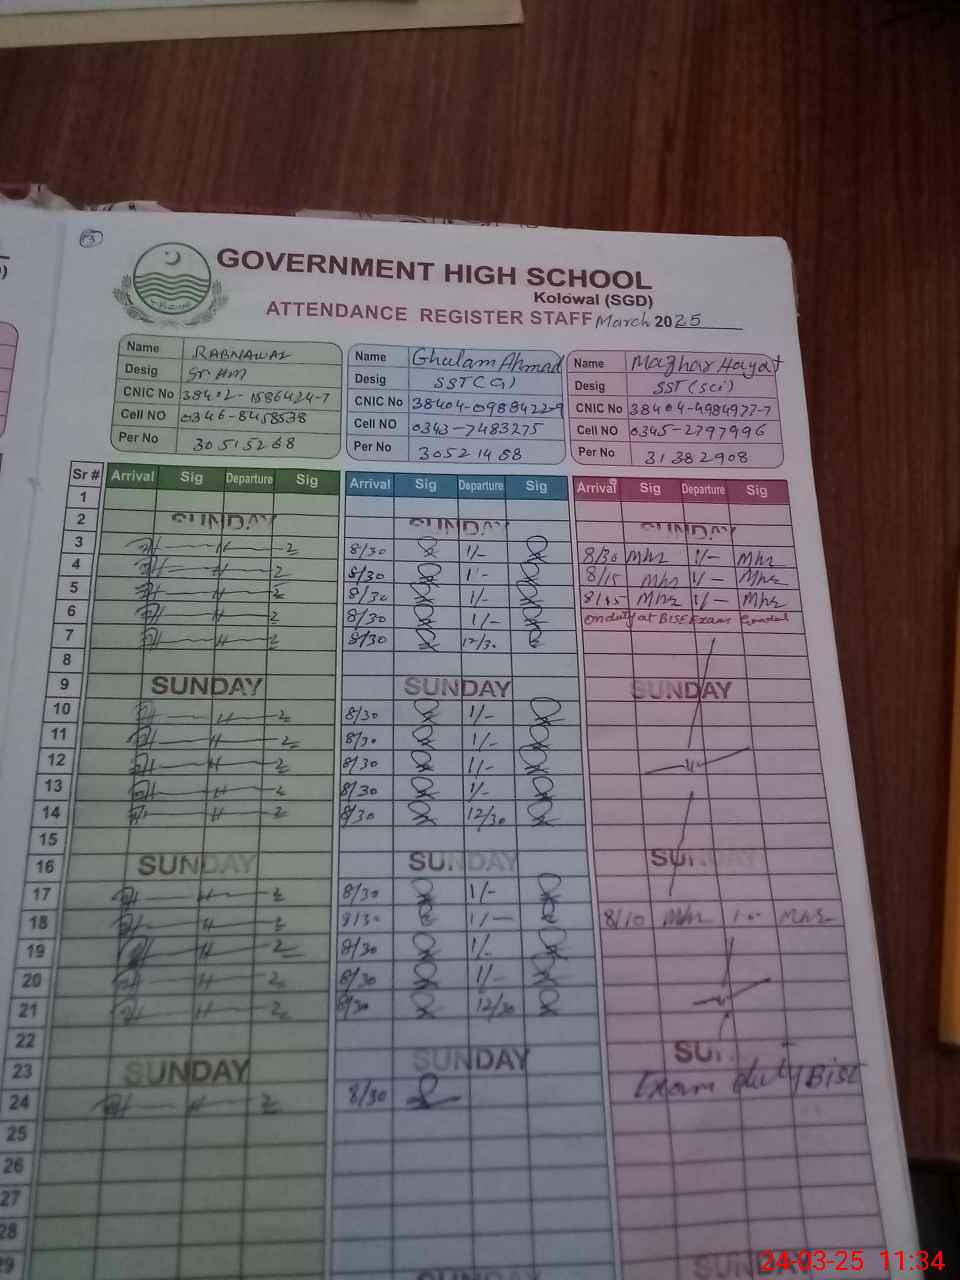 GOVERNMENT HIGH SCHOOL
Kolowal (SGD)
ATTENDANCE REGISTER STAFF March 2025
Name RABNAWAZ
Desig Sr HM
CNIC No 38402-1586424-7
Cell NO 0346-8458538
Per No 30515268
Name Ghulam Ahmad
Desig SST(G)
CNIC No 38404-0988422-9
Cell NO 0343-7483275
Per No 30521458
Name Mazhar Hayat
Desig SST(Sci)
CNIC No 38404-4984977-7
Cell NO 0345-2797996
Per No 31382908
Sr # Arrival Sig Departure Sig Arrival Sig Departure Sig Arrival Sig Departure Sig
1
2 SUNDAY SUNDAY SUNDAY
3 8/30 1/- 8/30 Mhr 1/- Mhr
4 8/30 1/- 8/15 Mhr 1/- Mhr
5 8/30 1/- 8/15 Mhr 1/- Mhr
6 8/30 1/- on duty at BISE Exam
7 8/30 12/30
8
9 SUNDAY SUNDAY SUNDAY
10 8/30 1/-
11 8/30 1/-
12 8/30 1/-
13 8/30 1/-
14 8/30 12/30
15
16 SUNDAY SUNDAY SUNDAY
17 8/30 1/-
18 8/30 1/- 8/10 Mhr Mhr
19 8/30 1/-
20 8/30 1/-
21 8/30 12/30
22
23 SUNDAY SUNDAY SU
24 8/30 Exam duty BISE
25
26
27
28
29
SUNDAY SUNDAY
24-03-25 11:34